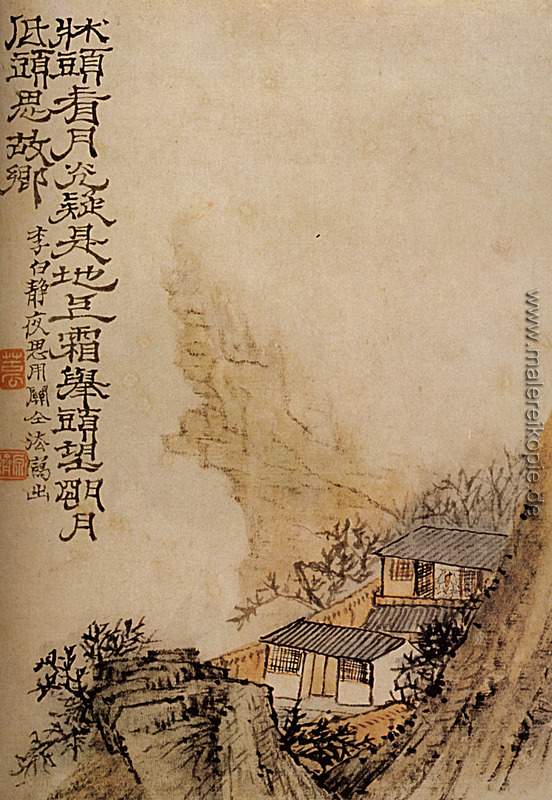 牀頭看月光疑是地上霜舉頭望朙月
低頭思故鄉
李白靜夜思用關仝法寫出
www.malereikopie.de